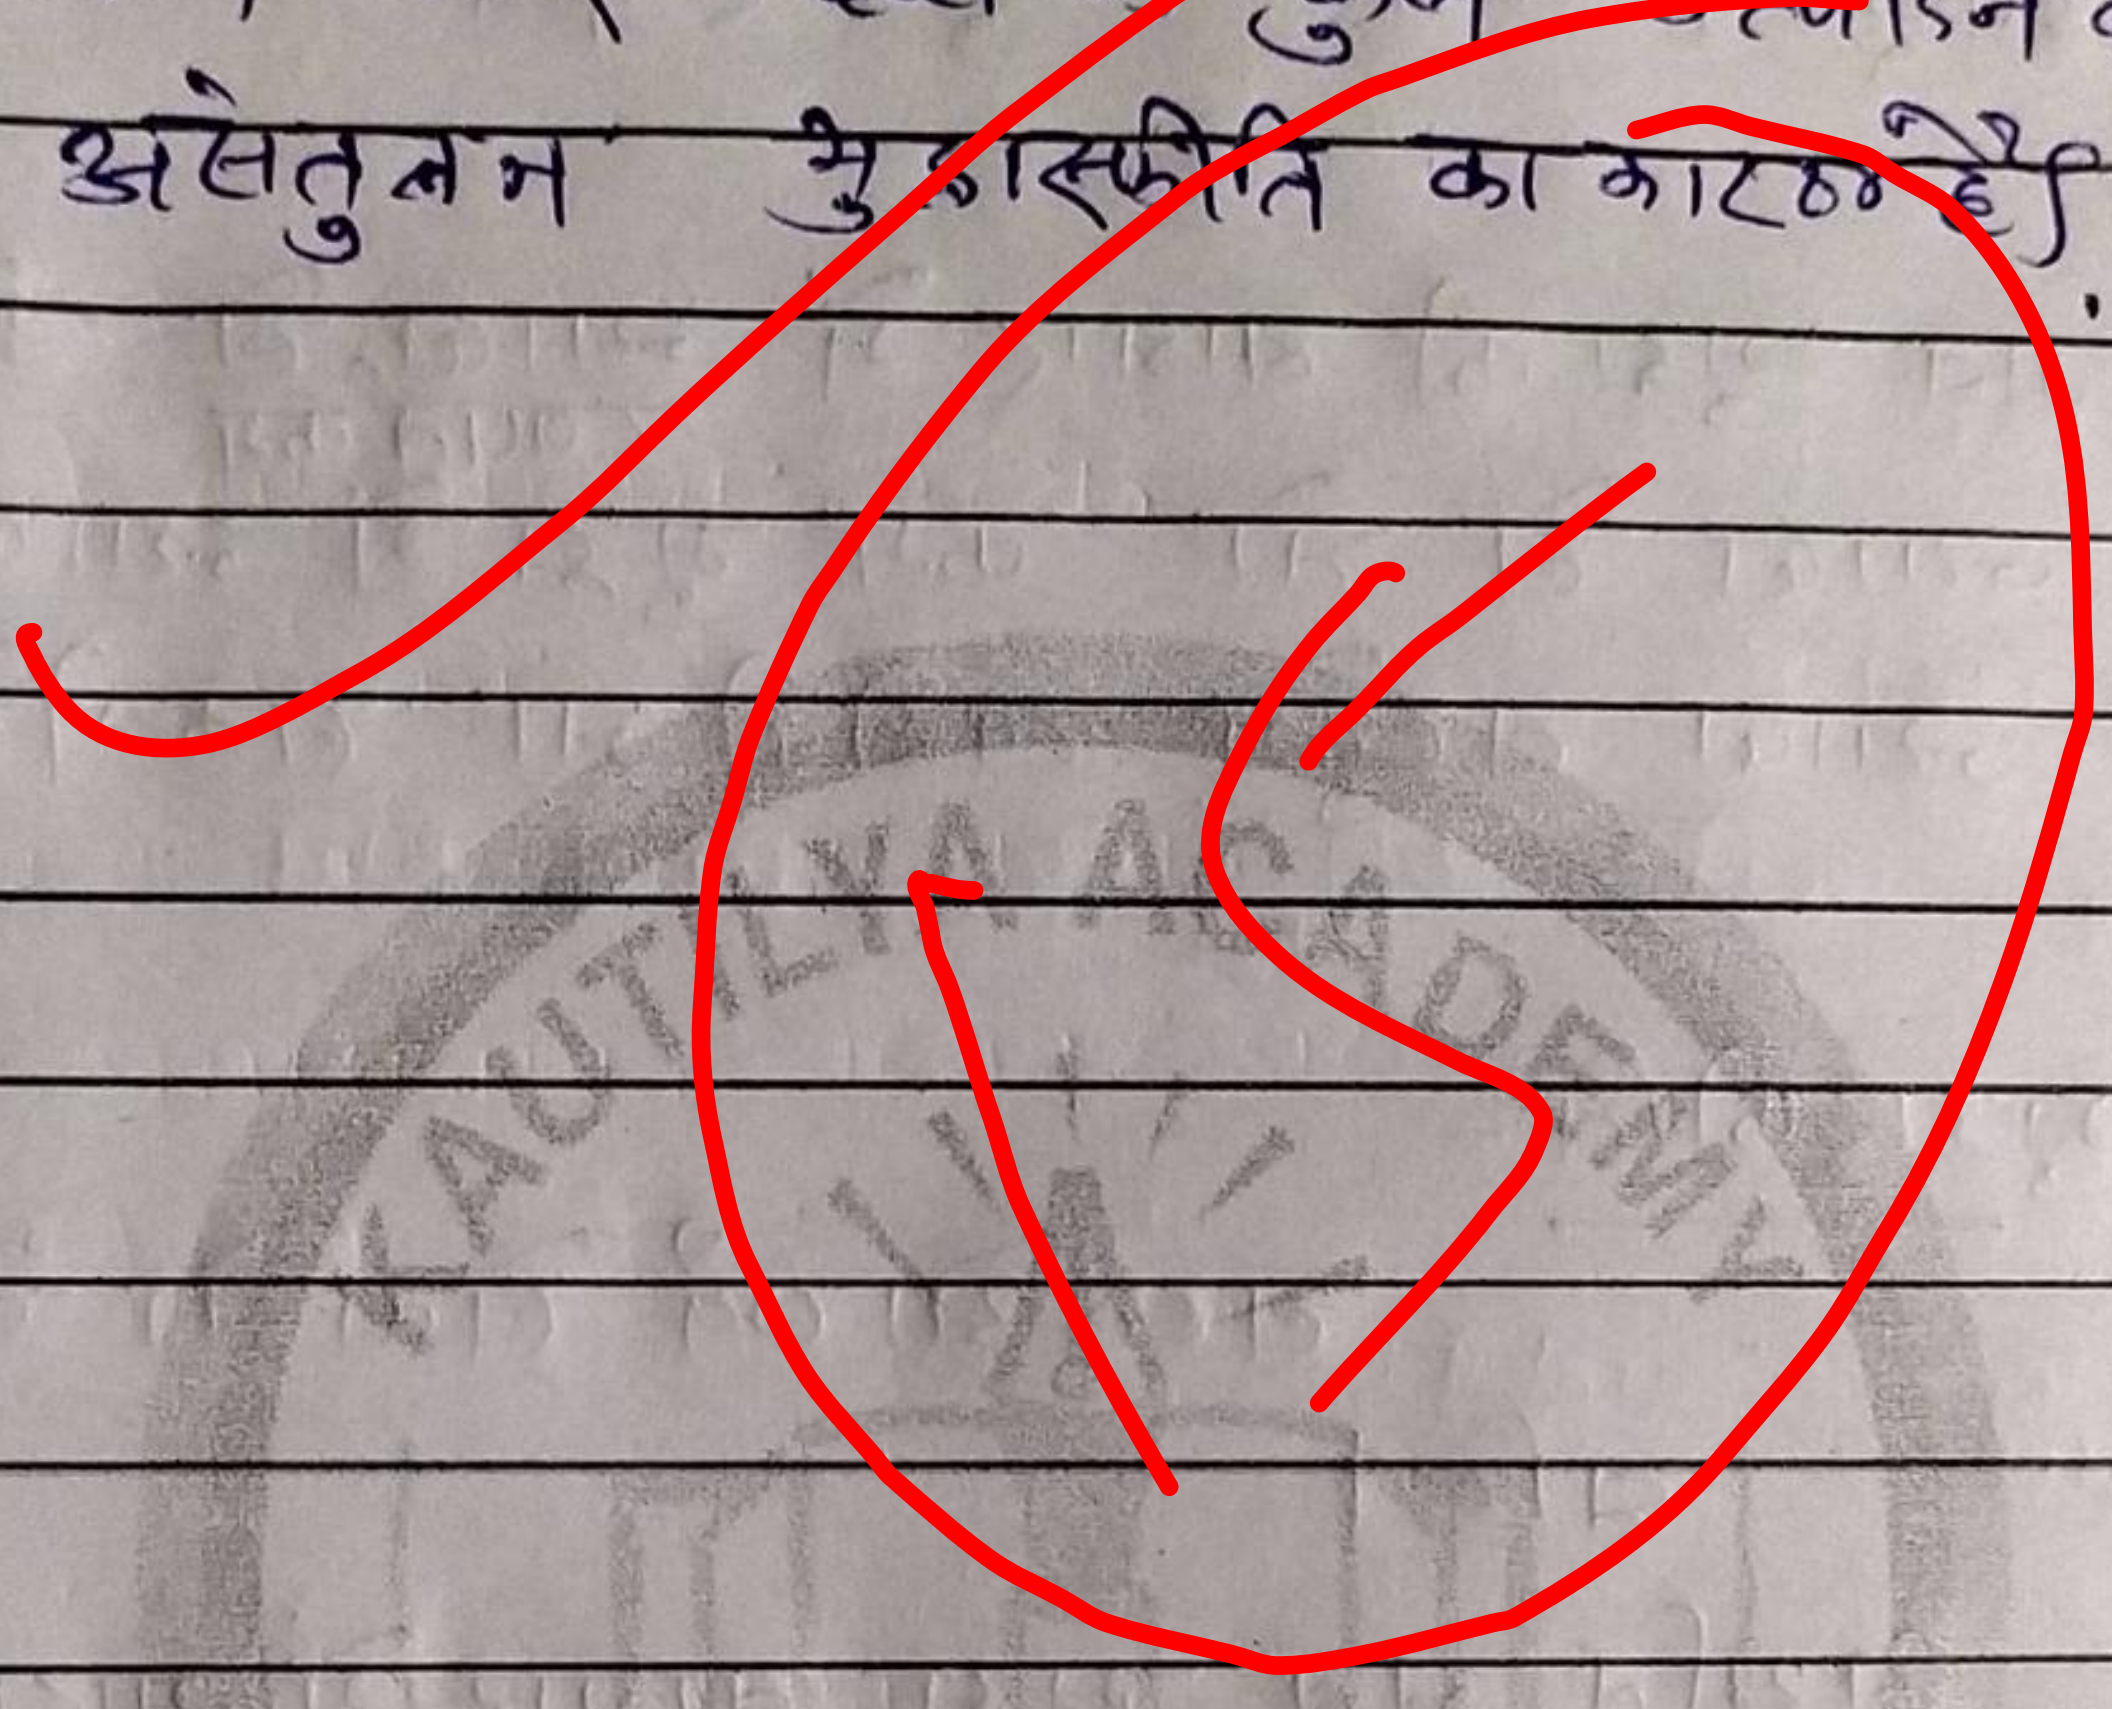 असंतुलन मुद्रास्फीति का कारण है।
KAUTILYA ACADEMY
15